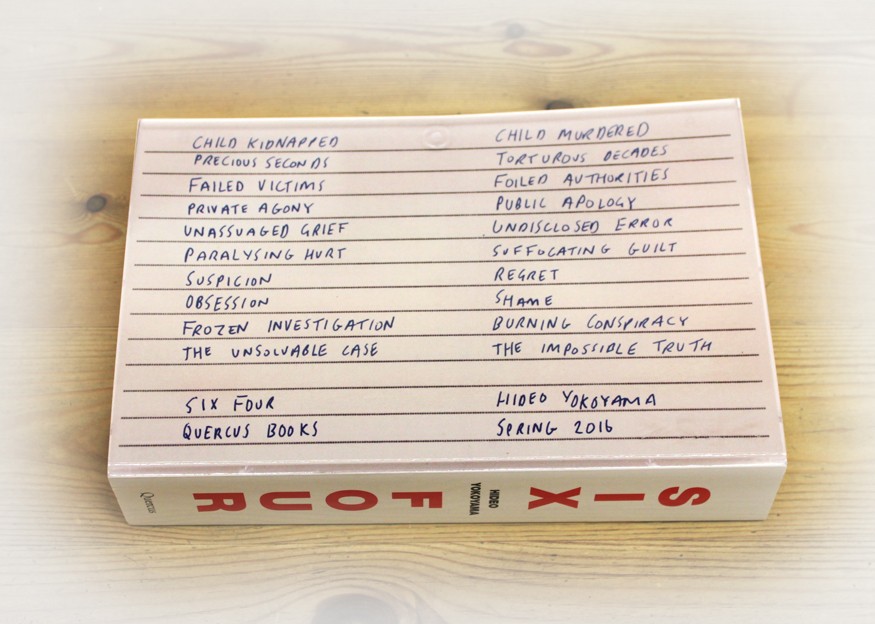 CHILD KIDNAPPED CHILD MURDERED
PRECIOUS SECONDS TORTUROUS DECADES
FAILED VICTIMS FOILED AUTHORITIES
PRIVATE AGONY PUBLIC APOLOGY
UNASSUAGED GRIEF UNDISCLOSED ERROR
PARALYSING HURT SUFFOCATING GUILT
SUSPICION REGRET
OBSESSION SHAME
FROZEN INVESTIGATION BURNING CONSPIRACY
THE UNSOLVABLE CASE THE IMPOSSIBLE TRUTH
SIX FOUR HIDEO YOKOYAMA
QUERCUS BOOKS SPRING 2016
SIX
HIDEO
YOKOYAMA
FOUR
Quercus